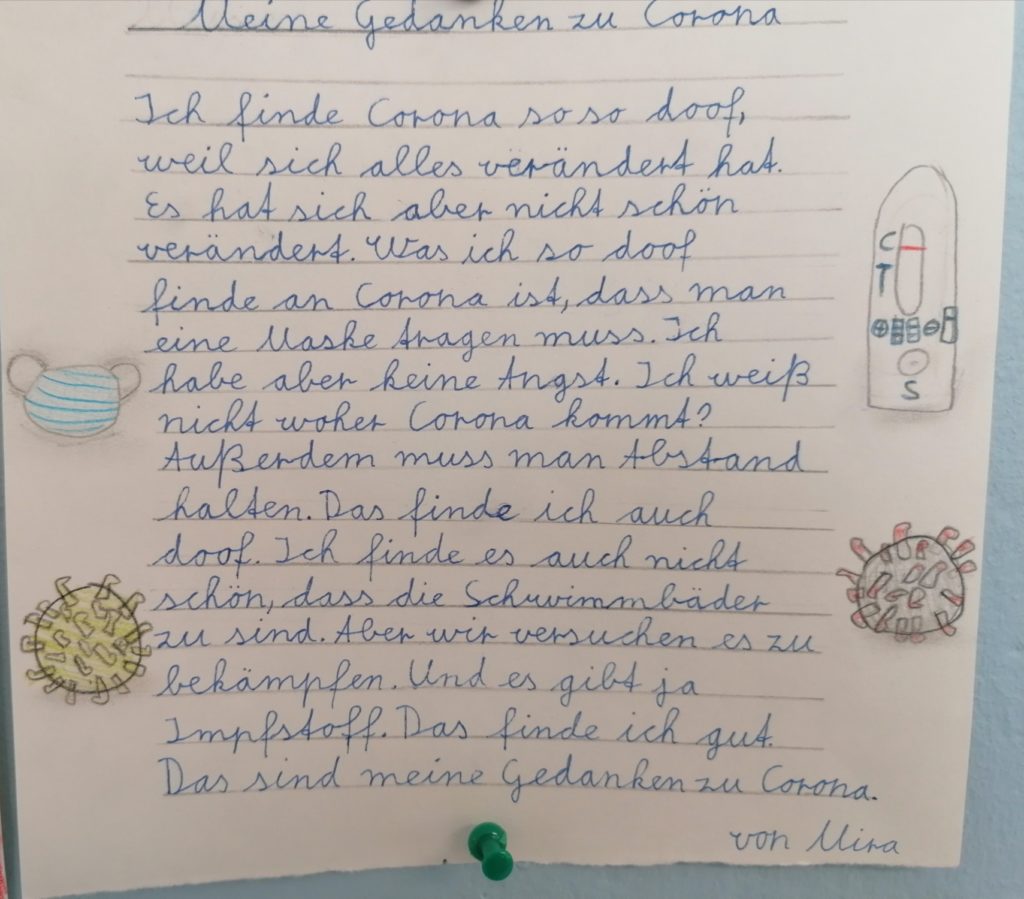 Meine Gedanken zu Corona
Ich finde Corona so so doof,
weil sich alles verändert hat.
Es hat sich aber nicht schön
verändert. Was ich so doof
finde an Corona ist, dass man
eine Maske tragen muss. Ich
habe aber keine Angst. Ich weiß
nicht woher Corona kommt?
Außerdem muss man Abstand
halten. Das finde ich auch
doof. Ich finde es auch nicht
schön, dass die Schwimmbäder
zu sind. Aber wir versuchen es zu
bekämpfen. Und es gibt ja
Impfstoff. Das finde ich gut.
Das sind meine Gedanken zu Corona.
von Mira
C
T
S